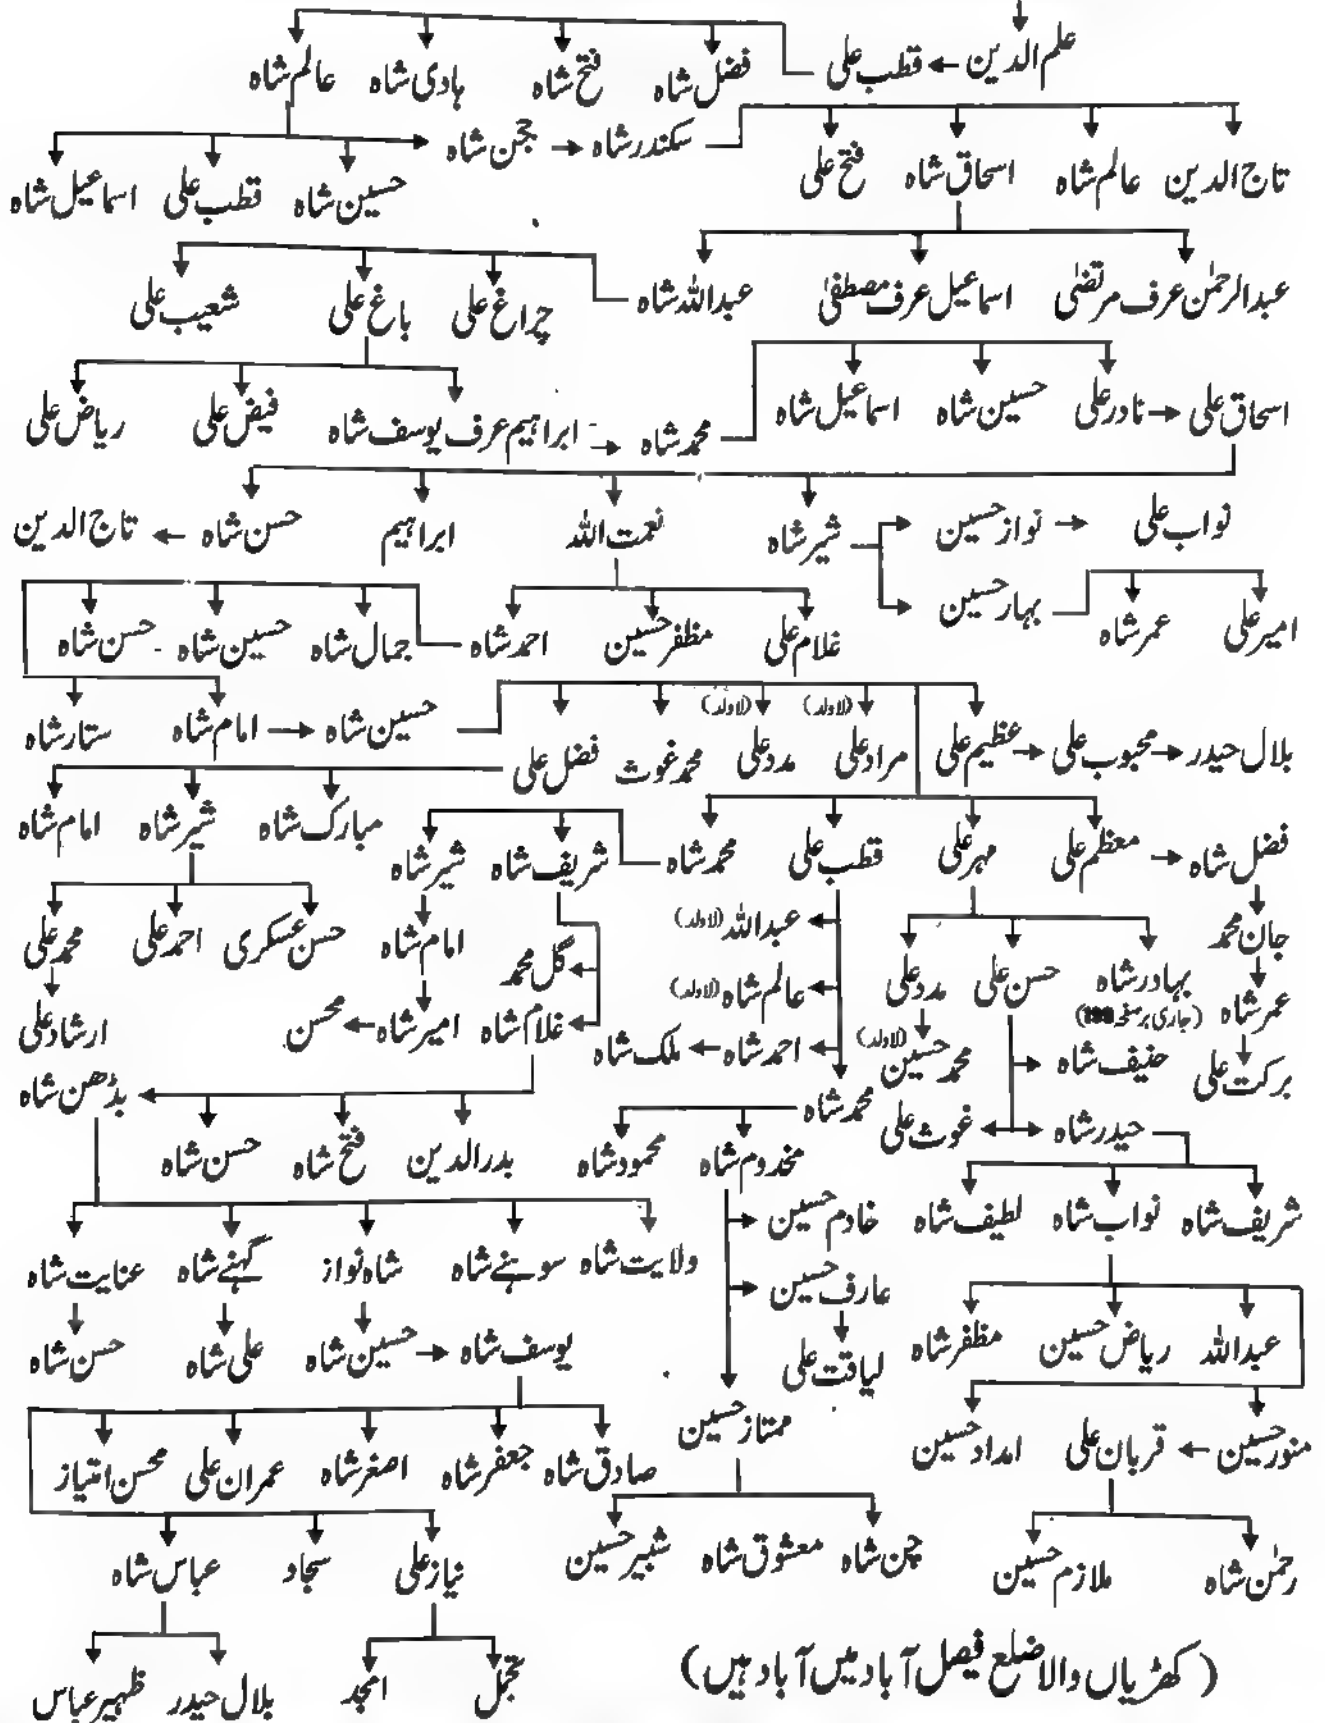 علم الدین قطب علی فضل شاہ فتح شاہ ہادی شاہ عالم شاہ
تاج الدین عالم شاہ اسحاق شاہ فتح علی سکندر شاہ جحن شاہ حسین شاہ قطب علی اسماعیل شاہ
عبدالرحمٰن عرف مرتضیٰ اسماعیل عرف مصطفیٰ عبداللہ شاہ چراغ علی باغ علی شعیب علی
اسحاق علی نادر علی حسین شاہ اسماعیل شاہ محمد شاہ ابراہیم عرف یوسف شاہ فیض علی ریاض علی
نواب علی نواز حسین شیر شاہ نعمت اللہ ابراہیم حسن شاہ تاج الدین
امیر علی عمر شاہ بہار حسین غلام علی مظفر حسین احمد شاہ جمال شاہ حسین شاہ حسن شاہ
بلال حیدر محبوب علی عظیم علی مراد علی (لاولد) مدد علی (لاولد) محمد غوث فضل علی حسین شاہ امام شاہ ستار شاہ
مبارک شاہ شیر شاہ امام شاہ
فضل شاہ معظم علی مہر علی قطب علی محمد شاہ شریف شاہ شیر شاہ
جان محمد عبداللہ (لاولد) امام شاہ حسن عسکری احمد علی محمد علی
بہادر شاہ حسن علی مدد علی عالم شاہ (لاولد) گل محمد
عمر شاہ (جاری بر صفحہ) غلام شاہ امیر شاہ محسن ارشاد علی
برکت علی حنیف شاہ محمد حسین (لاولد) احمد شاہ ملک شاہ
حیدر شاہ غوث علی محمد شاہ بڈھن شاہ
مخدوم شاہ محمود شاہ بدرالدین فتح شاہ حسن شاہ
شریف شاہ نواب شاہ لطیف شاہ خادم حسین
عارف حسین ولایت شاہ سوہنے شاہ شاہ نواز گہنے شاہ عنایت شاہ
عبداللہ ریاض حسین مظفر شاہ لیاقت علی یوسف شاہ حسین شاہ علی شاہ حسن شاہ
منور حسین قربان علی امداد حسین ممتاز حسین صادق شاہ جعفر شاہ اصغر شاہ عمران علی محسن امتیاز
رحمٰن شاہ ملازم حسین چن شاہ معشوق شاہ شبیر حسین نیاز علی سجاد عباس شاہ
تجمل امجد بلال حیدر ظہیر عباس
(کھڑیاں والا ضلع فیصل آباد میں آباد ہیں)